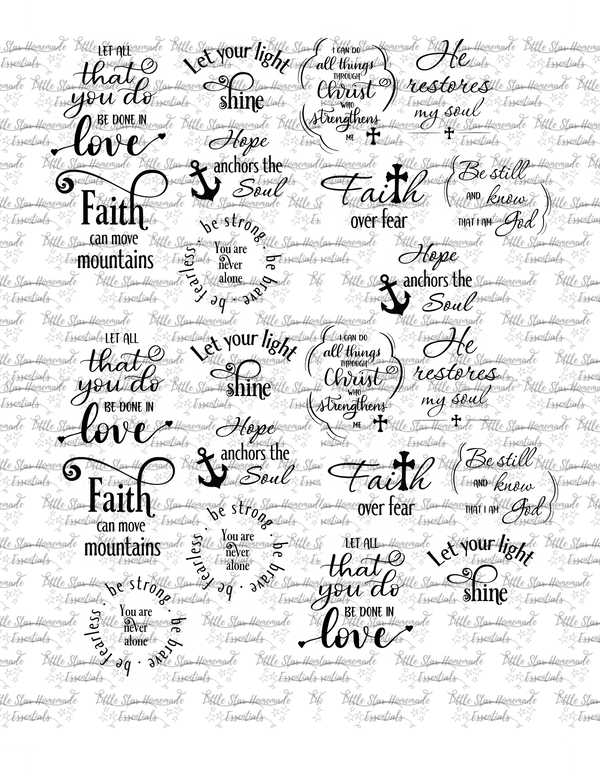 LET ALL
that
you do
BE DONE IN
love
Let your light
shine
I CAN DO
all things
THROUGH
Christ
WHO
strengthens
ME
He
restores
my soul
Hope
anchors the
Soul
Faith
can move
mountains
Faith
over fear
Be still
AND know
THAT I AM God
be strong · be brave · be fearless ·
You are
never
alone
Hope
anchors the
Soul
LET ALL
that
you do
BE DONE IN
love
Let your light
shine
I CAN DO
all things
THROUGH
Christ
WHO
strengthens
ME
He
restores
my soul
Hope
anchors the
Soul
Faith
can move
mountains
Faith
over fear
Be still
AND know
THAT I AM God
be strong · be brave · be fearless ·
You are
never
alone
LET ALL
that
you do
BE DONE IN
love
Let your light
shine
be strong · be brave · be fearless ·
You are
never
alone
Little Star Homemade
Essentials